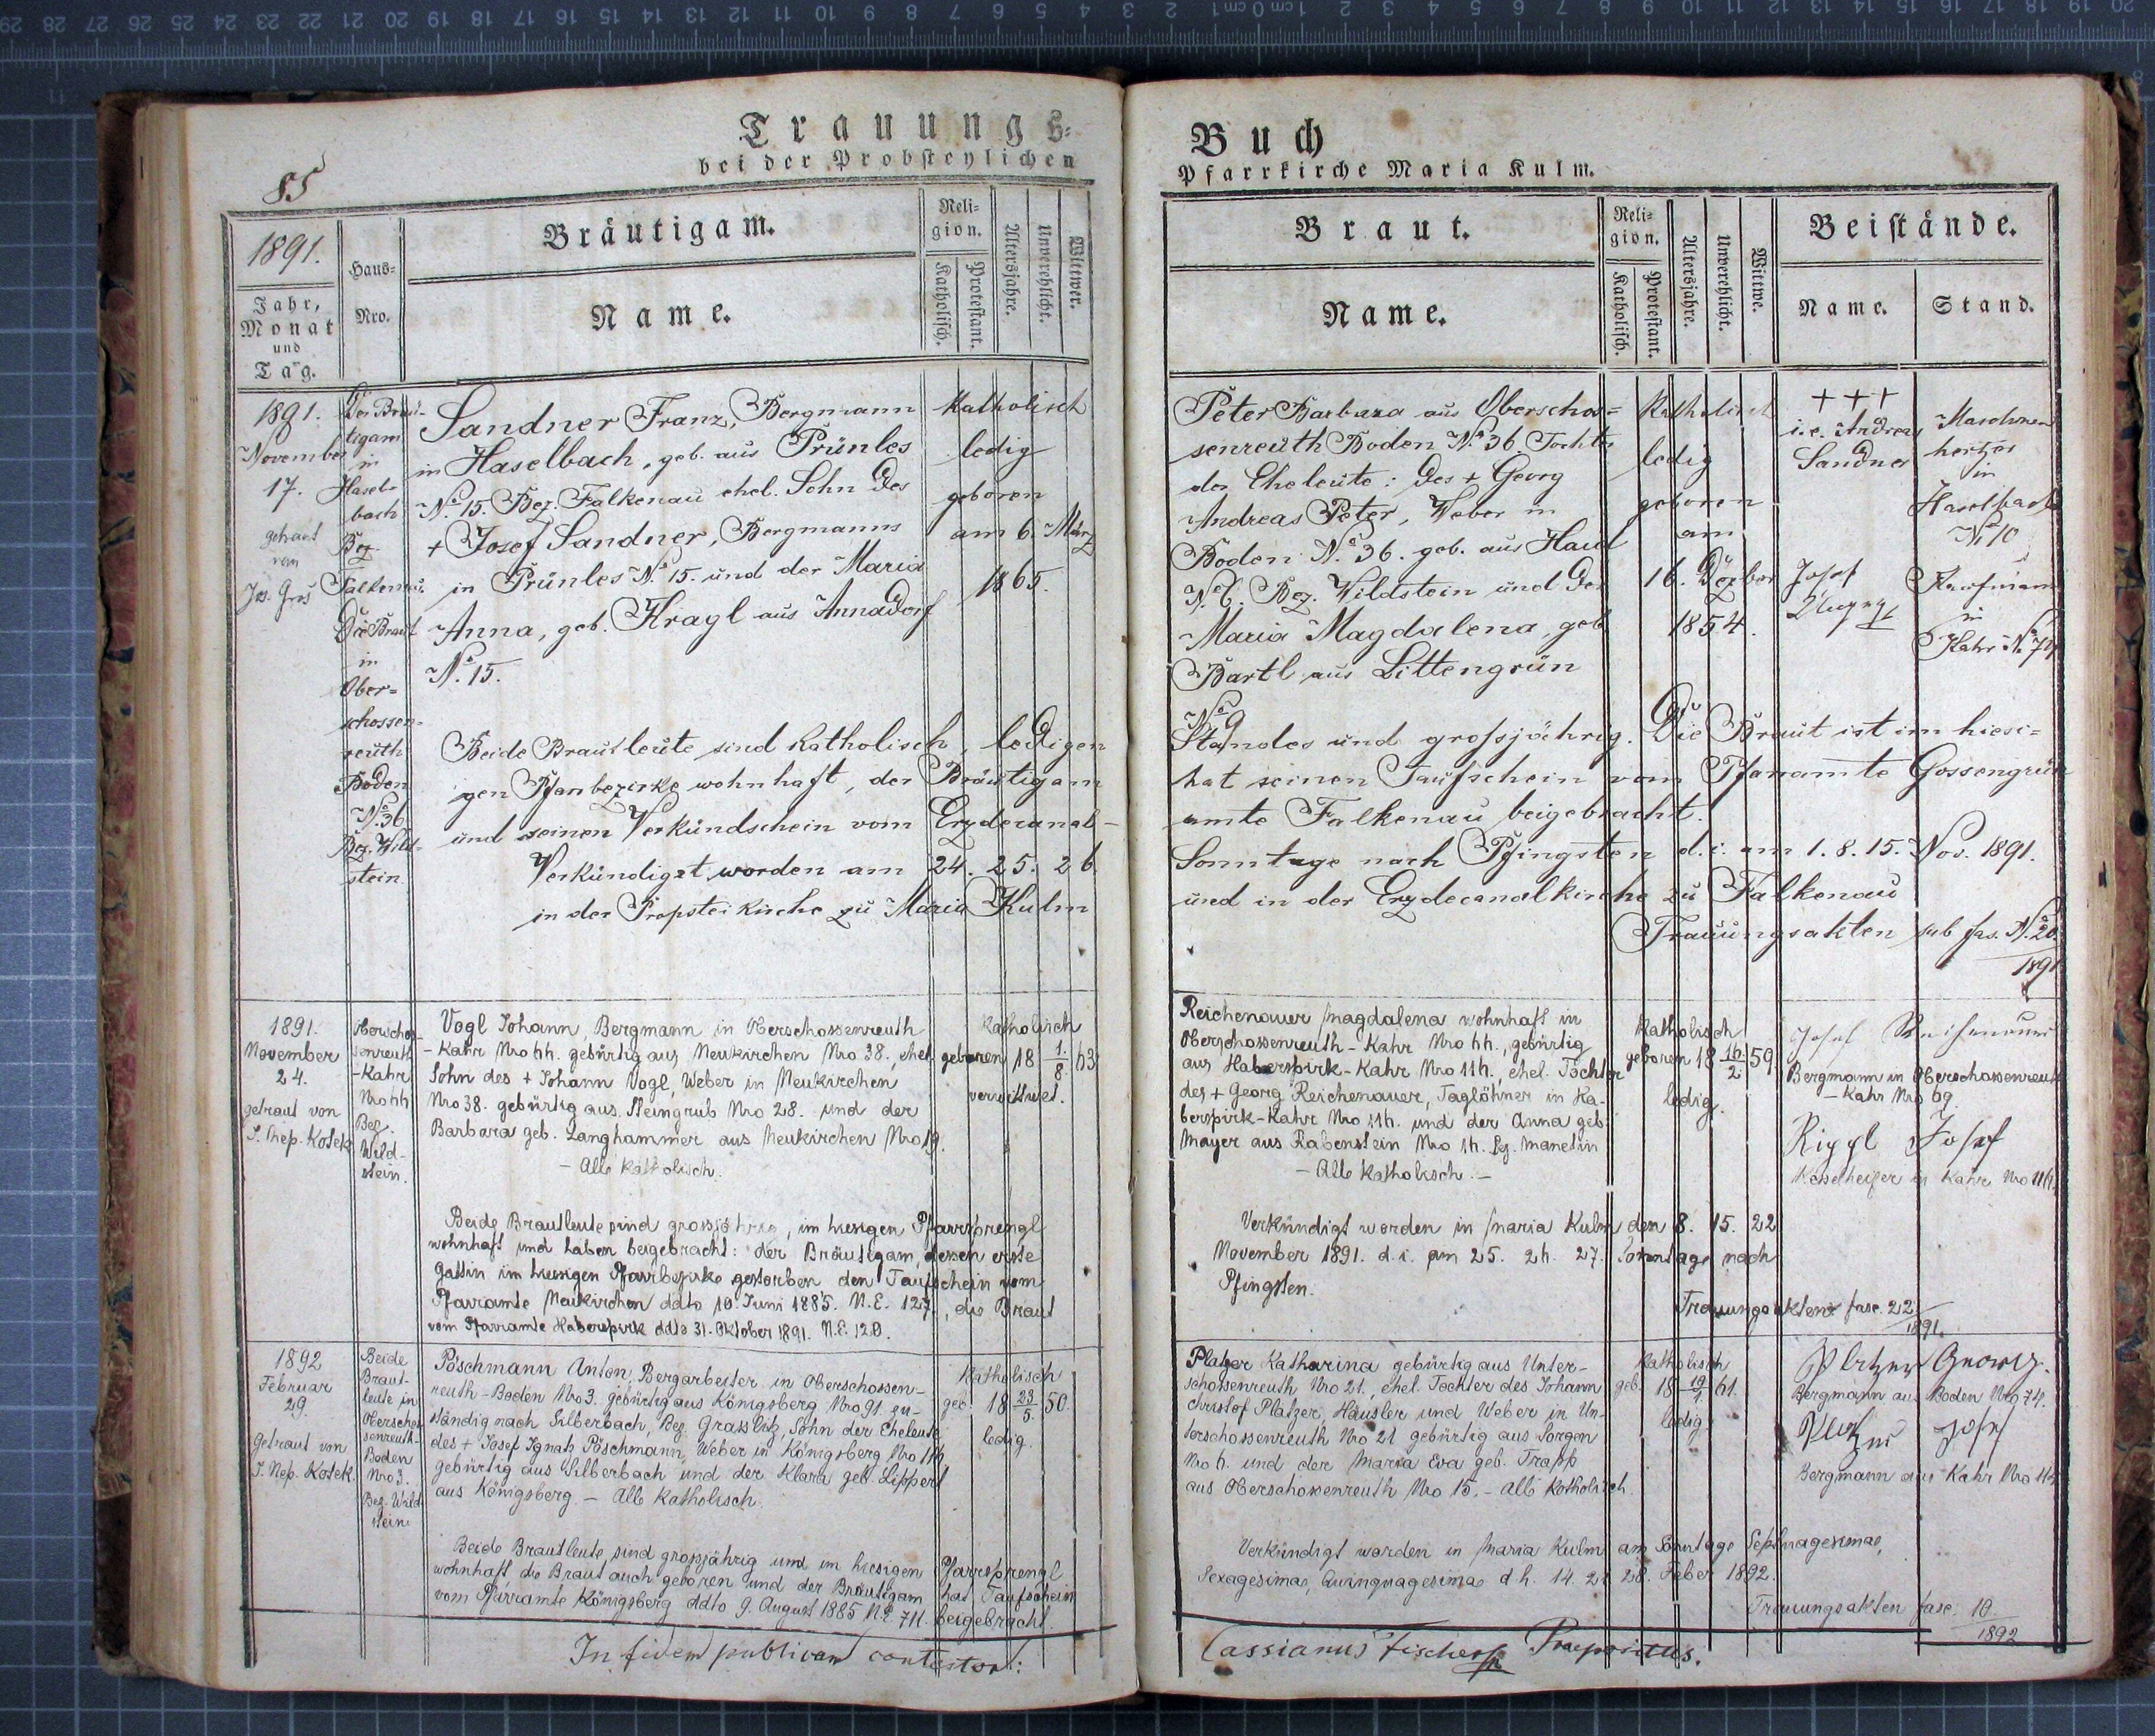 85
Trauungs-
bei der Probsteylichen
1891.
Jahr,
Monat
und
Tag.
Haus-
Nro.
Bräutigam.
Name.
Reli-
gion.
Katholisch.
Protestant.
Altersjahre.
Unverehlicht.
Wittwer.
1891.
November
17.
getraut
von
Jos. Gros
Der Bräu-
tigam
in
Hasel-
bach
Bez.
Falkenau.
Die Braut
in
Ober-
schossen-
reuth
Boden
No. 36
Bez. Wild-
stein.
Sandner Franz, Bergmann
in Haselbach, geb. aus Prünles
No. 15. Bez. Falkenau ehel. Sohn des
+ Josef Sandner, Bergmanns
in Prünles No. 15. und der Maria
Anna, geb. Kragl aus Annadorf
No. 15.
Katholisch
ledig
geboren
am 6. März
1865.
Beide Brautleute sind katholisch, ledigen
gen Pfarrbezirke wohnhaft, der Bräutigam
und seinen Verkündschein vom Erzdecanal-
Verkündiget worden am 24. 25. 26.
in der Propsteikirche zu Maria Kulm
1891.
November
24.
getraut von
J. Nep. Kosek
Oberschos-
senreuth
-Kahr
Nro 44
Bez.
Wild-
stein.
Vogl Johann, Bergmann in Oberschossenreuth
-Kahr Nro 44. gebürtig aus Neukirchen Nro 38., ehel.
Sohn des + Johann Vogl, Weber in Neukirchen
Nro 38. gebürtig aus Steingrub Nro 28. und der
Barbara geb. Langhammer aus Neukirchen Nro 19.
- Alle katholisch.
Katholisch
geboren 18 1./8. 63
verwittwet.
Beide Brautleute sind grossjährig, im hiesigen Pfarrsprengl
wohnhaft und haben beigebracht: der Bräutigam, dessen erste
Gattin im hiesigen Pfarrbezirke gestorben den Taufschein vom
Pfarramte Neukirchen ddto 10. Juni 1885. N.E. 127., die Braut
vom Pfarramte Haberspirk ddto 31. Oktober 1891. N.E. 120.
1892
Februar
29.
Getraut von
J. Nep. Kosek
Beide
Braut-
leute in
Oberschos-
senreuth-
Boden
Nro 3.
Bez. Wild-
stein.
Pöschmann Anton, Bergarbeiter in Oberschossen-
reuth-Boden Nro 3. gebürtig aus Königsberg Nro 91. zu-
ständig nach Silberbach, Bez. Grasslitz, Sohn der Eheleute
des + Josef Ignatz Pöschmann, Weber in Königsberg Nro
gebürtig aus Silberbach und der Klara geb. Lippert
aus Königsberg. - Alle katholisch.
Katholisch
geb. 18 23/5. 50.
ledig.
Beide Brautleute sind grossjährig und im hiesigen Pfarrsprengl
wohnhaft die Braut auch geboren und der Bräutigam hat Taufschein
vom Pfarramte Königsberg ddto 9. August 1885 N.E. 711. beigebracht.
In fidem publicam contestor:
Buch
Pfarrkirche Maria Kulm.
Braut.
Name.
Reli-
gion.
Katholisch.
Protestant.
Altersjahre.
Unverehlicht.
Wittwe.
Beistände.
Name.
Stand.
Peter Barbara aus Oberschos-
senreuth Boden No. 36 Tochter
der Eheleute: des + Georg
Andreas Peter, Weber in
Boden No. 36. geb. aus
No. 6. Bez. Wildstein und der
Maria Magdalena, geb.
Bartl aus Littengrün
No. 9
Katholisch
ledig
geboren
am
16. Dezber
1854.
+++
i.e. Andreas
Sandner
in
Haselbach
No 10
Josef
Kaufmann
in
Kahr No
Standes und grossjährig. Die Braut ist im hiesi-
hat seinen Taufschein vom Pfarramte Gossengrün
amte Falkenau beigebracht.
Sonntage nach Pfingsten d. i. am 1. 8. 15. Nov. 1891.
und in der Erzdecanalkirche zu Falkenau
Trauungsakten sub fas. No. 20.
1891
Reichenauer Magdalena wohnhaft in
Oberschossenreuth-Kahr Nro 44., gebürtig
aus Haberspirk-Kahr Nro 114., ehel. Tochter
des + Georg Reichenauer, Taglöhner in Ha-
berspirk-Kahr Nro 114. und der Anna geb.
Mayer aus Rabenstein Nro 14. Bez. Manetin
- Alle katholisch. -
Katholisch
geboren 18 16./2. 59.
ledig.
Josef
Bergmann in Oberschossenreuth
-Kahr Nro 69.
Riggl Josef
Kesselheizer in Kahr Nro 114.
Verkündigt worden in Maria Kulm den 8. 15. 22
November 1891. d. i. am 25. 26. 27. Sonntage nach
Pfingsten.
Trauungsakten fasc. 22.
1891.
Platzer Katharina gebürtig aus Unter-
schossenreuth Nro 21., ehel. Tochter des Johann
Christof Platzer, Häusler und Weber in Un-
terschossenreuth Nro 21 gebürtig aus Sorgen
Nro 6. und der Maria Eva geb. Trapp
aus Oberschossenreuth Nro 15. - Alle katholisch.
Katholisch
geb. 18 19/1. 61.
ledig.
Platzer Georg.
Bergmann aus Boden Nro 74.
Platzer Josef
Bergmann aus Kahr Nro
Verkündigt worden in Maria Kulm am Sonntage Septuagesimae,
Sexagesimae, Quinquagesima d. h. 14. 21. 28. Feber 1892.
Trauungsakten fasc. 10.
1892
Cassianus Fischer Praepositus.